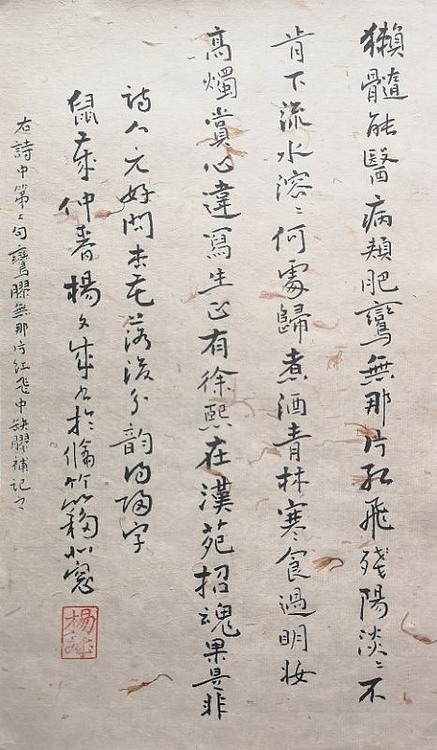 獺髓能醫病頰肥鸞無那片紅飛殘陽淡〻不
肯下流水溶〻何處歸煮酒青林寒食過明妝
高燭賞心違寫生正有徐熙在漢苑招魂果是非
詩人元好問杏花落後分韻得歸字
鼠年仲春楊文成书於脩竹簃北窗
右詩中第二句鸞膠無那片紅飛中缺膠補記之